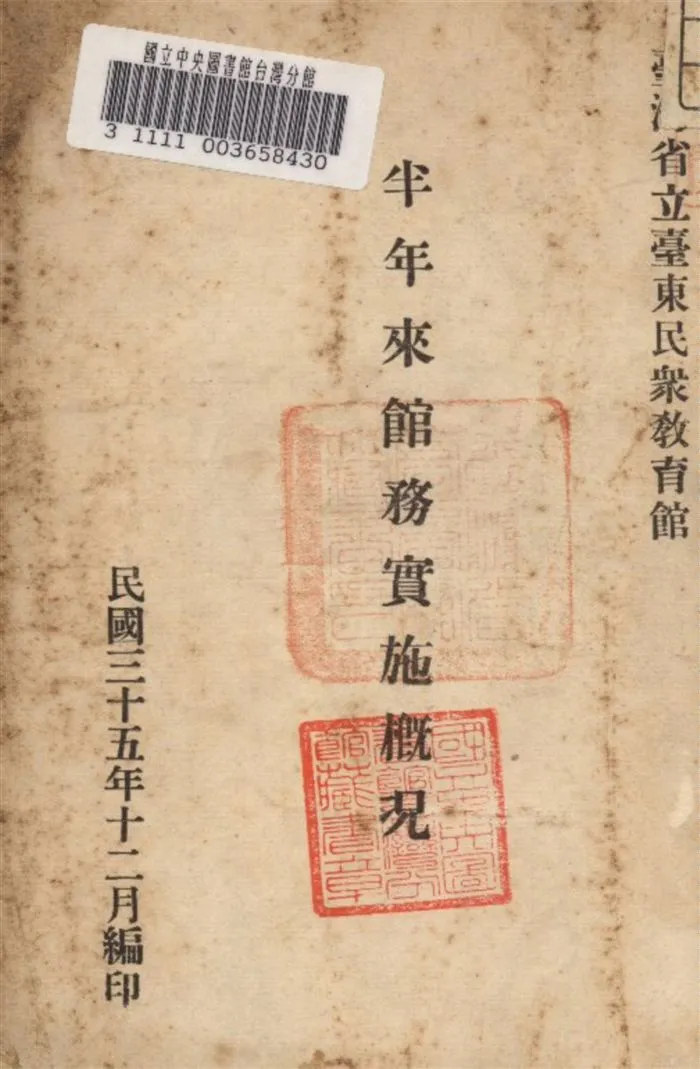 臺灣省立臺東民眾教育館
半年來館務實施概況
民國三十五年十二月編印
國立中央圖書館台灣分館
3 1111 003658430
國立中央圖
書館臺灣分
館藏書章